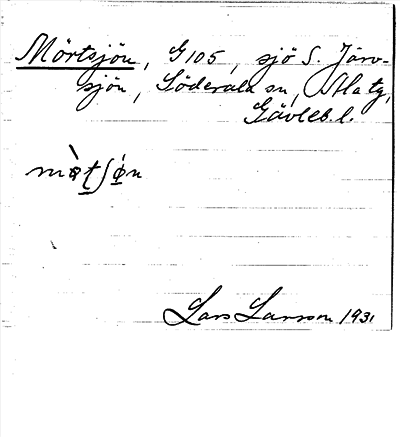 Mörtsjön, G 105, sjö S. Järv-
sjön, Söderala sn, Ala tg,
Gävleb. l.
Lars Larsson 1931